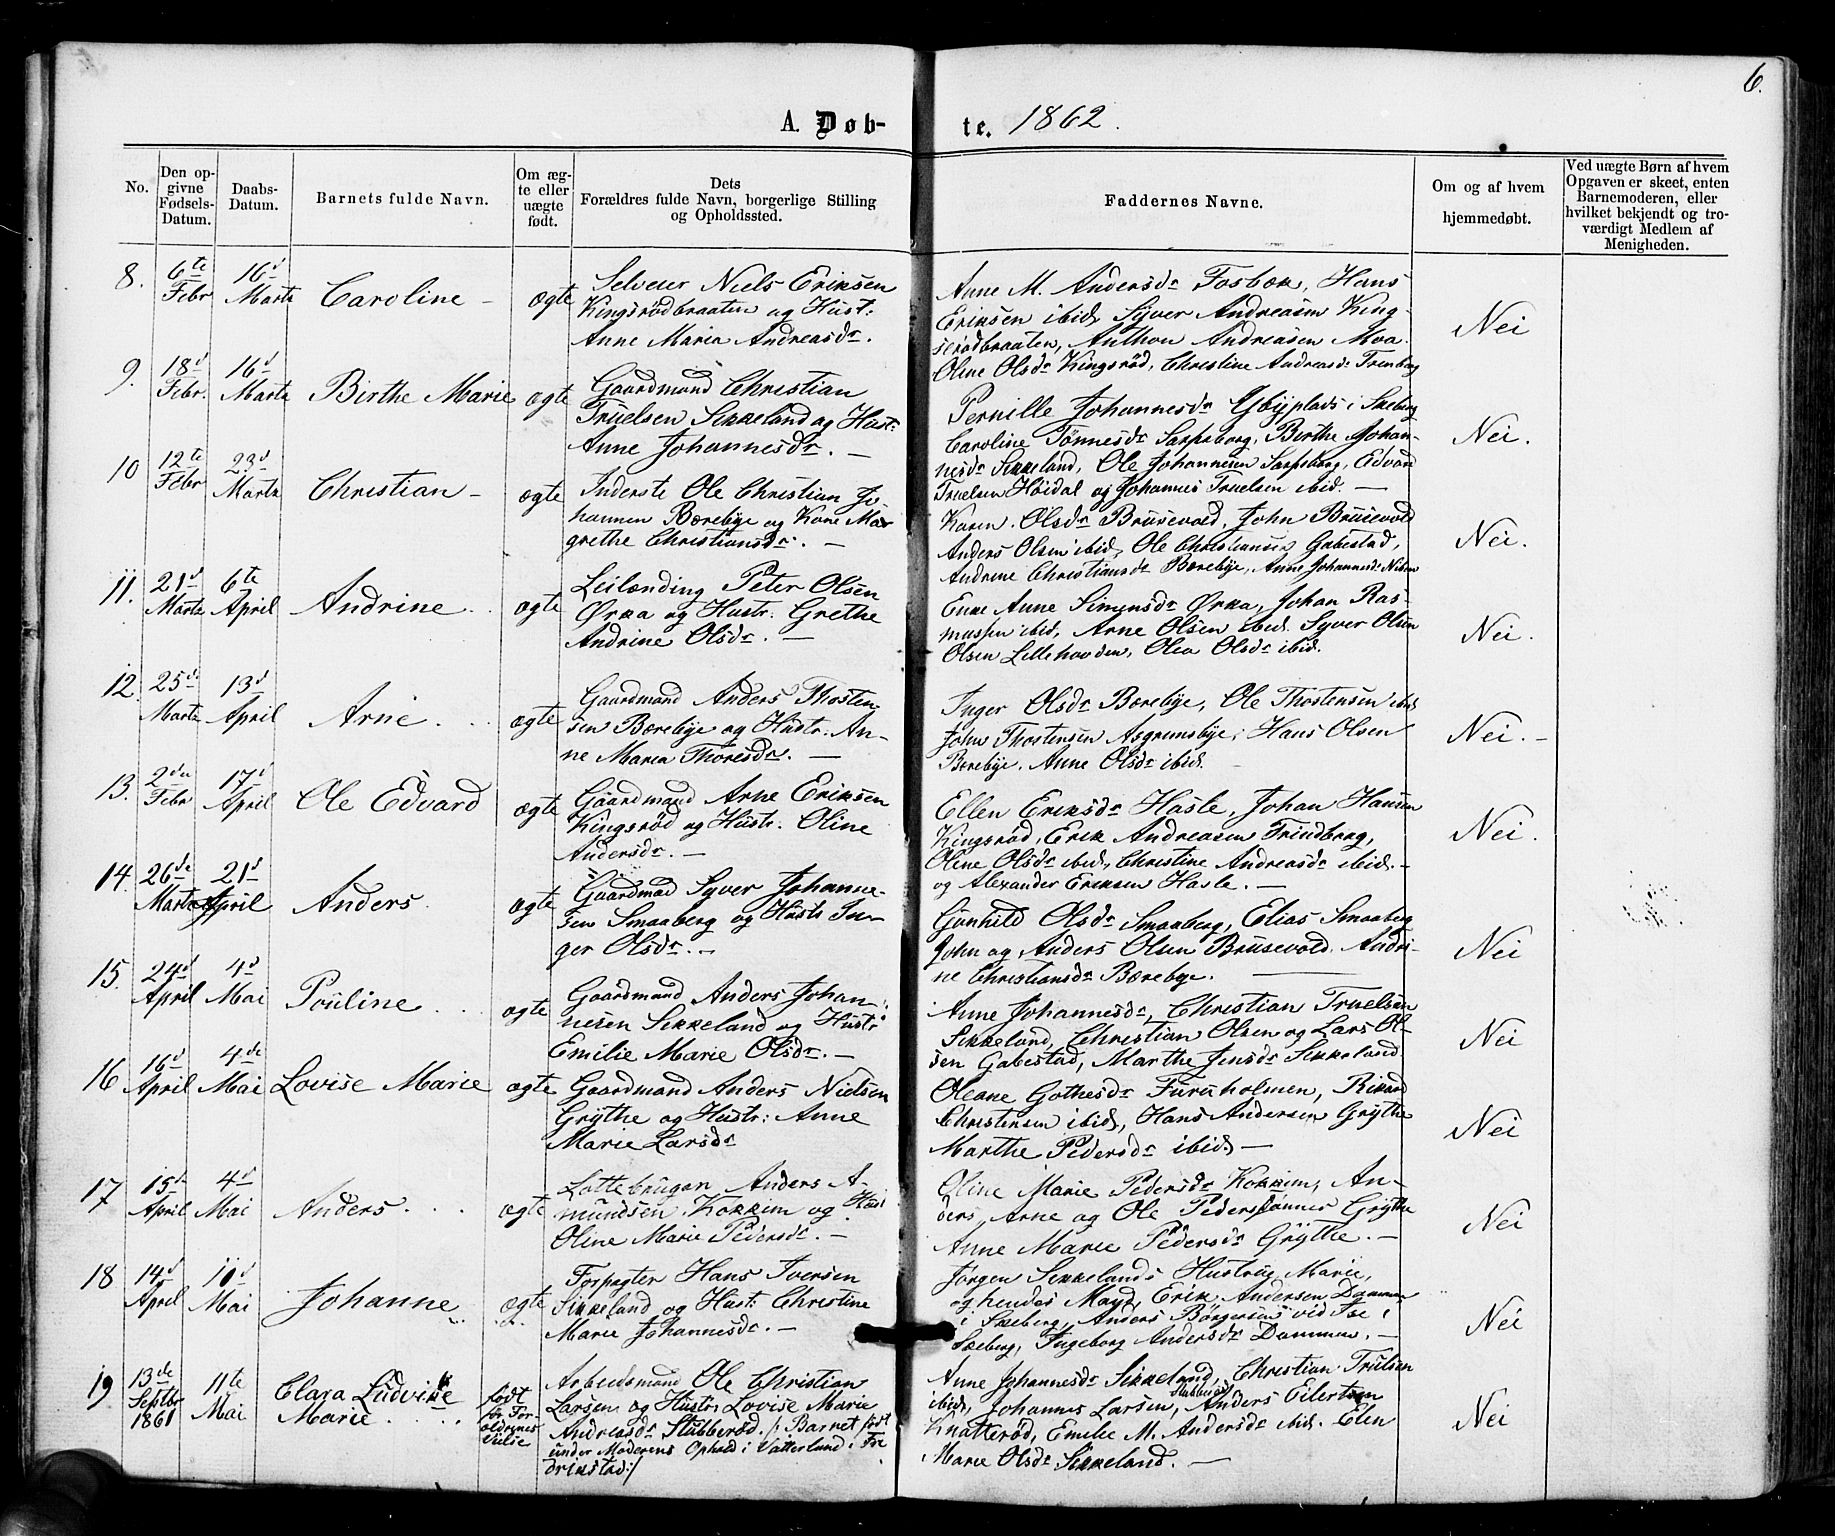 6.
A. Døb-te. 1862.
No.
Den opgivne Fødsels-Datum.
Daabs-Datum.
Barnets fulde Navn.
Om ægte eller uægte født.
Dets Forældres fulde Navn, borgerlige Stilling og Opholdssted.
Faddernes Navne.
Om og af hvem hjemmedøbt.
Ved uægte Børn af hvem Opgaven er skeet, enten Barnemoderen, eller hvilket bekjendt og troværdigt Medlem af Menigheden.
8. 6te Febr 16d Marts Caroline - ægte
Selveier Niels Eriksen
Kingsrødbraaten og Hust:
Anne Maria Andreasdr.
Anne M. Andersdr Fosbæk, Hans
Eriksen ibid, Syver Andreasen King-
serødbraaten, Anthon Andreasen Moa.
Oline Olsdr Kingsrød, Christine Andreasdr
Nei
9. 18d Febr. 16d Marts Birthe Marie ægte
Gaardmand Christian
Truelsen Sikkeland og Hust:
Anne Johannesdr. -
Pernille Johannesdr i Skeberg
Caroline Tønnesdr Sarpsborg, Birthe Johan-
nesdr Sikkeland, Ole Johannesen Sarpsborg, Edvard
Truelsen Høidal og Johannes Truelsen ibid. -
Nei.
10 12te Febr 23d Marts Christian - ægte
Inderste Ole Christian Jo
hannen Bærebye og Kone Mar
grethe Christiansdr. -
Karen Olsdr Brusevold, John Brusevold
Anders Olsen ibid, Ole Christiansen Gabestad,
Andrine Christiansdr Bærebye, Anne Johannesdr
Nei.
11. 21d Marts 6te April Andrine . . ægte
Leilænding Peter Olsen
Ørka og Hustr: Grethe
Andrine Olsdr. -
Enke Anne Simensdr Ørka, Johan Ras-
mussen ibid, Arne Olsen ibid. Syver Olsen
Olsen Lillehovden, Olea Olsdr ibid.
Nei.
12. 25de Marts 13d April Arne . . . ægte
Gaardmand Anders Thosten-
sen Bærebye og Hustr: An-
ne Maria Thoresdr. -
Inger Olsdr Borebye, Ole Thostensen ibid
John Thostensen Asgrimsbye, Hans Olsen
Borebye. Anne Olsdr ibid.
Nei. -
13. 2den Febr 17d April Ole Edvard ægte
Gaardmand Arne Eriksen
Kingsrød og Hustr: Oline
Andersdr. -
Ellen Eriksdr Hasle, Johan Hansen
Kingsrød, Erik Andreasen Trindborg,
Oline Olsdr ibid, Christine Andreasdr ibid. -
og Alexander Eriksen Hasle. -
Nei.
14. 26de Marts 21d April Anders ægte
Gaardmad Syver Johanne-
sen Smaaberg og Hustr In-
ger Olsdr. -
Gunhild Olsdr Smaaberg, Elias Smaaberg
John og Anders Olsen Brusevold. Andri-
ne Christiansdr Bærebye.
Nei
15. 24d April 4d Mai Pouline . . . ægte
Gaardmand Anders Johan-
nesen Sikkeland og Hustr:
Emilie Marie Olsdr. -
Anne Johannesdr, Christian Truelsen
Sikkeland, Christian Olsen og Lars Ol-
sen Gabestad, Marthe Jensdr Sikkeland
Nei
16 16d April 4de Mai Lovise Marie ægte
Gaardmand Anders Nielsen
Grythe og Hustr: Anne
Marie Larsdr
Oleane Gothesdr Furuholmen, Rikard
Christensen ibid, Hans Andersen Grythe
Marthe Pedersdr ibid -
Nei
17 15de April 4d Mai Anders . . . ægte
Lottebruger Anders A-
mundsen Kokkim og Hust
Oline Marie Pedersdr. -
Oline Marie Pedersdr Kokkim, An-
ders, Arne og Ole Pederssønner Grythe
Anne Marie Pedersdr Grythe. -
Nei
18 14d April 11d Mai Johanne ægte
Forpagter Hans Iversen
Sikkeland og Hust: Christine
Marie Johannesdr. -
Jørgen Sikkelands Hustrue Marie,
og hendes Mayd, Erik Andersen Dammen
i Skeberg, Anders Børgersen ved
Skeberg, Ingeborg Andersdr Dammen. -
Nei
19 13de Septbr 1861 11te Mai Clara Ludvike Marie . . . født før Foræeldrenes Vielse
Arbeidsmand Ole Christian
Larsen og Hustr: Lovise Marie
Andreasdr Stabberød. /: Barnet født
under Moderens Ophold i Vatterland i Fre
drikstad:/
Anne Johannesdr Sikkeland, Christian Trulsen
ibid, Johannes Larsen Stabberød, Anders Eilertsen
Knatterød, Emilie M. Andersdr ibid. Elen
Marie Olsdr Sikkeland. -
Nei